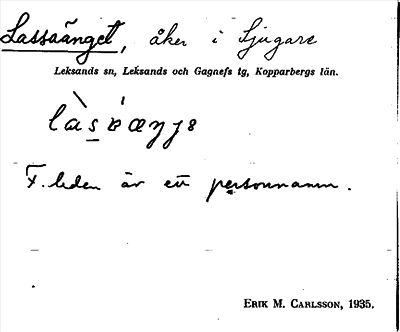 Lassaänget, åker i Sjugare
Leksands sn, Leksands och Gagnefs tg, Kopparbergs län.
F. leden är ett personnamn.
ERIK M. CARLSSON, 1935.